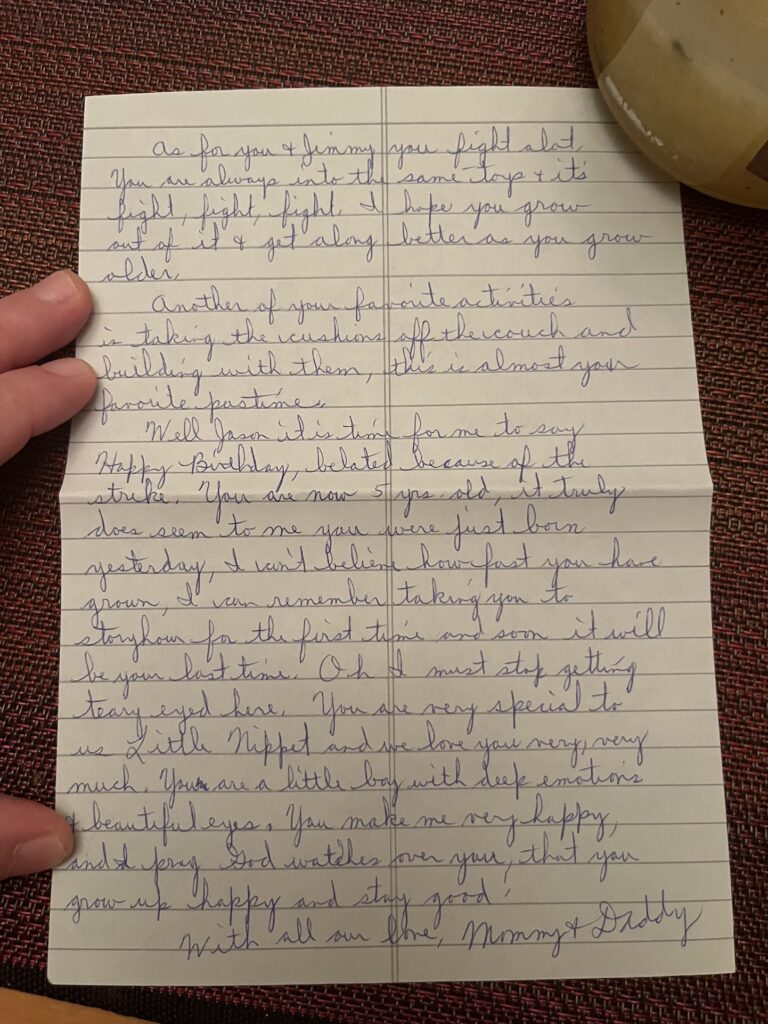 As for you & Jimmy you fight alot.
You are always into the same toys & it's
fight, fight, fight. I hope you grow
out of it & get along better as you grow
older.
Another of your favorite activities
is taking the cushions off the couch and
building with them, this is almost your
favorite pastime.
Well Jason it is time for me to say
Happy Birthday, belated because of the
strike. You are now 5 yrs. old, it truly
does seem to me you were just born
yesterday, I can't believe how fast you have
grown, I can remember taking you to
storyhour for the first time and soon it will
be your last time. Oh I must stop getting
teary eyed here. You are very special to
us Little Nippet and we love you very, very
much. You are a little boy with deep emotions
& beautiful eyes. You make me very happy,
and I pray God watches over you, that you
grow up happy and stay good!
With all our love, Mommy & Daddy